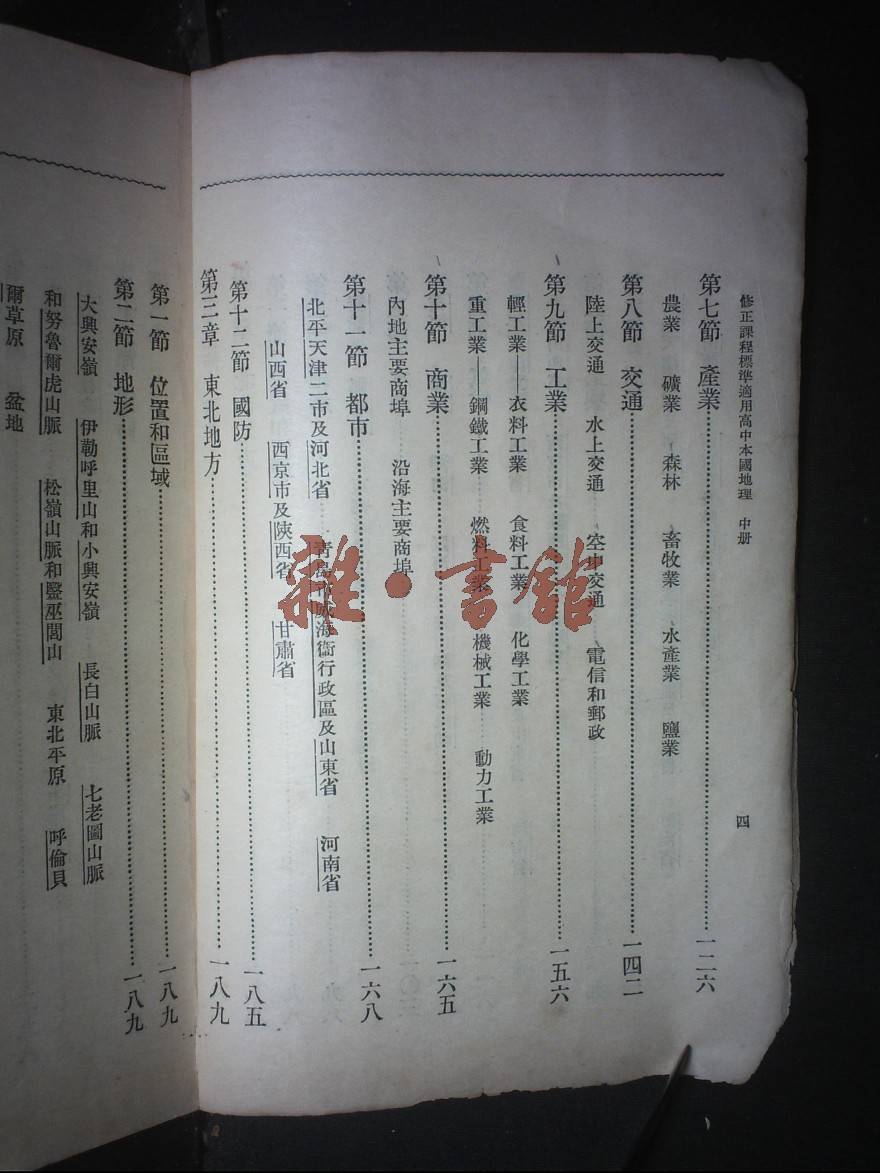 修正課程標準適用高中本國地理 中册 四
第七節 產業 一二六
農業 礦業 森林 畜牧業 水產業 鹽業
第八節 交通 一四二
陸上交通 水上交通 空中交通 電信和郵政
第九節 工業 一五六
輕工業——衣料工業 食料工業 化學工業
重工業——鋼鐵工業 燃料工業 機械工業 動力工業
第十節 商業 一六五
內地主要商埠 沿海主要商埠
第十一節 都市 一六八
北平天津二市及河北省 青島市威海衞行政區及山東省 河南省
山西省 西京市及陝西省 甘肅省
第十二節 國防 一八五
第三章 東北地方 一八九
第一節 位置和區域 一八九
第二節 地形 一八九
大興安嶺 伊勒呼里山和小興安嶺 長白山脈 七老圖山脈
和努魯爾虎山脈 松嶺山脈和醫巫閭山 東北平原 呼倫貝
爾草原 盆地
雜·書館